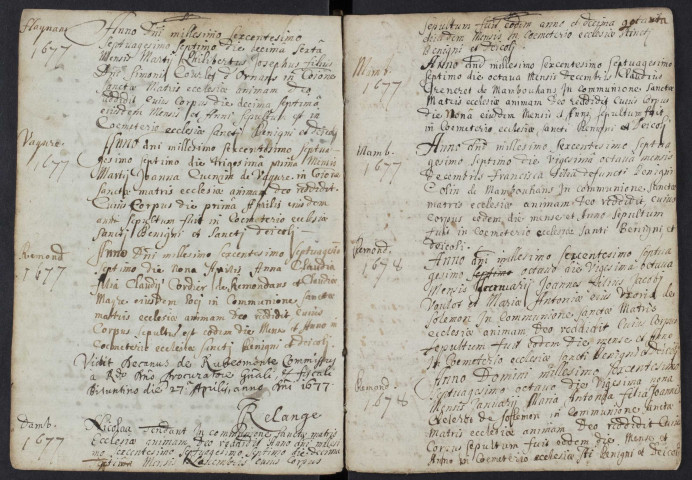 Flagnans
1677
Anno dni millesimo sexcentesimo
septuagesimo septimo die decima sexta
Mensis Martij Philibertus Josephus filius
Dni Simonis d'Ornans in Comõne
Sanctæ Matris ecclesiæ animam deo
reddidit Cuius Corpus die decima septima
eiusdem Mensis et Anni sepultum est in
Coemeterio ecclesiæ sancti Benigni et deicoli
1677
Anno dni millesimo sexcentesimo septua-
gesimo septimo die trigesima prima Mensis
Martij Joanna in Comõne
Sanctæ matris ecclesiæ animam deo reddidit
Cuius Corpus die prima Aprilis eiusdem
anni sepultum fuit in Coemeterio ecclesiæ
Sancti Benigni et Sancti deicoli
Remond
1677
Anno Dni millesimo sexcentesimo septuagesimo
septimo die nona Aprilis Anna Claudia
filia Claudij Cordier de Remondans et Claudiæ
Maire eiusdem loci in Communione sanctæ
matris ecclesiæ animam deo reddidit cuius
Corpus sepultum est eodem die Mense et Anno in
Coemeterio ecclesiæ sancti Benigni et deicoli
Visit Decanus de Rubeomonte Commissus
a Rdo Dno Procuratore gnali et fiscali
Bisuntino die 27a Aprilis anno dni 1677
Relange
Damb.
1677
Nicolaa in communione sanctæ matris
Ecclesiæ animam deo reddidit Anno dni millesi
mo sexcentesimo septuagesimo septimo die decima
septima Mensis Novembris cuius Corpus
sepultum fuit eodem anno et decima octava
eiusdem Mensis in Coemeterio ecclesiæ sancti
Benigni et deicoli
Mamb.
1677
Anno dni millesimo sexcentesimo septuagesimo
septimo die octava Mensis decembris Claudius
Greneret de Mambouhans in Communione sanctæ
Matris ecclesiæ animam deo reddidit cuius corpus
die Nona eiusdem Mensis et Anni sepultum fuit
in Coemeterio ecclesiæ sancti Benigni et deicoli
Mamb.
1677
Anno dni millesimo sexcentesimo septua
gesimo septimo die vigesima octava mensis
Decembris Francisca filia defuncti Benigni
Colin de Mambouhans in Communione sanctæ
matris ecclesiæ animam deo reddidit cuius
corpus eodem die mense et Anno sepultum
fuit in Coemeterio ecclesiæ sancti Benigni et
deicoli
Remond.
1678
Anno dni millesimo sexcentesimo septua
gesimo septimo octavo die vigesima octava
Mensis Januarij Joannes filius Jacobi
et Maria Antonia eius uxoris de
Solemon in Communione sanctæ Matris
ecclesiæ animam deo reddidit cuius Corpus
sepultum fuit eodem die mense et Anno
in Coemeterio ecclesiæ sancti Benigni et deicoli
Remond
1678
Anno Domini millesimo sexcentesimo
septuagesimo octavo die vigesima nona
Mensis Januarij Maria Antonia filia Joannis
de Solemon in Communione sanctæ
Matris ecclesiæ animam deo reddidit Cuius
Corpus sepultum fuit eodem die Mense et
Anno in Coemeterio ecclesiæ sti Benigni et deicoli